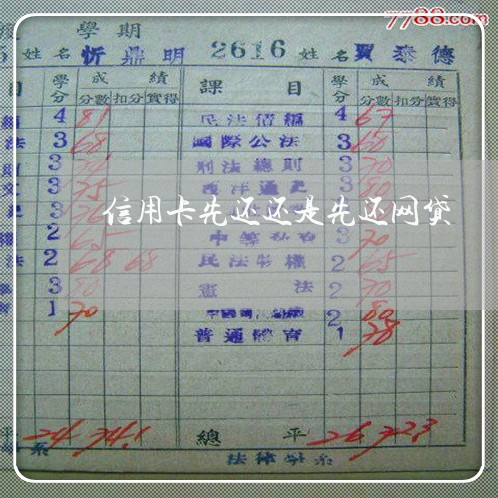 7788.com
學期
姓名 忻鼎明 2616 姓名 賈泰德
目 學分 成績 課目 學分 成績
分數 扣分 實得 分數 扣分 實得
4 81 民法債編 4 67
法 3 68 國際公法 3 60
3 刑法總則 3 70
3 75 西洋通史 3 80
信用卡先还还是先还网贷
2 65 3 70
法 2 68 68 民法物權 2 65
3 80 憲法 2 70
1 70 2 80
普通體育 1 78
平 24 74.1 總平 26 72.3
系 法律學系